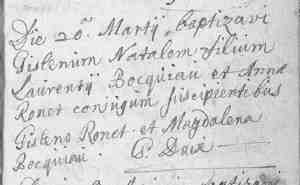 Die 20a Martij baptizavi
Gislenum Natalem filium
Laurentij Bocquiau et Annæ
Ronet conjugum suscipientibus
Gisleno Ronet et Magdalena
Bocquiau